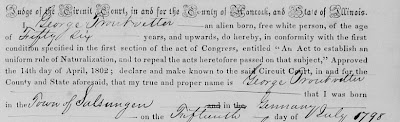 Judge of the Circuit Court, in and for the County of Hancock, and State of Illinois.
I George Troutvetter an alien born, free white person, of the age of
Fifty Six years, and upwards, do hereby, in conformity with the first
condition specified in the first section of the act of Congress, entitled "An Act to establish an
uniform rule of Naturalization, and to repeal the acts heretofore passed on that subject," Approved
the 14th day of April, 1802; declare and make known to the said Circuit Court, in and for the
County and State aforesaid, that my true and proper name is George Troutvetter
that I was born
in the Town of Salsungen and in the Germany
on the Fifteenth day of July 1798